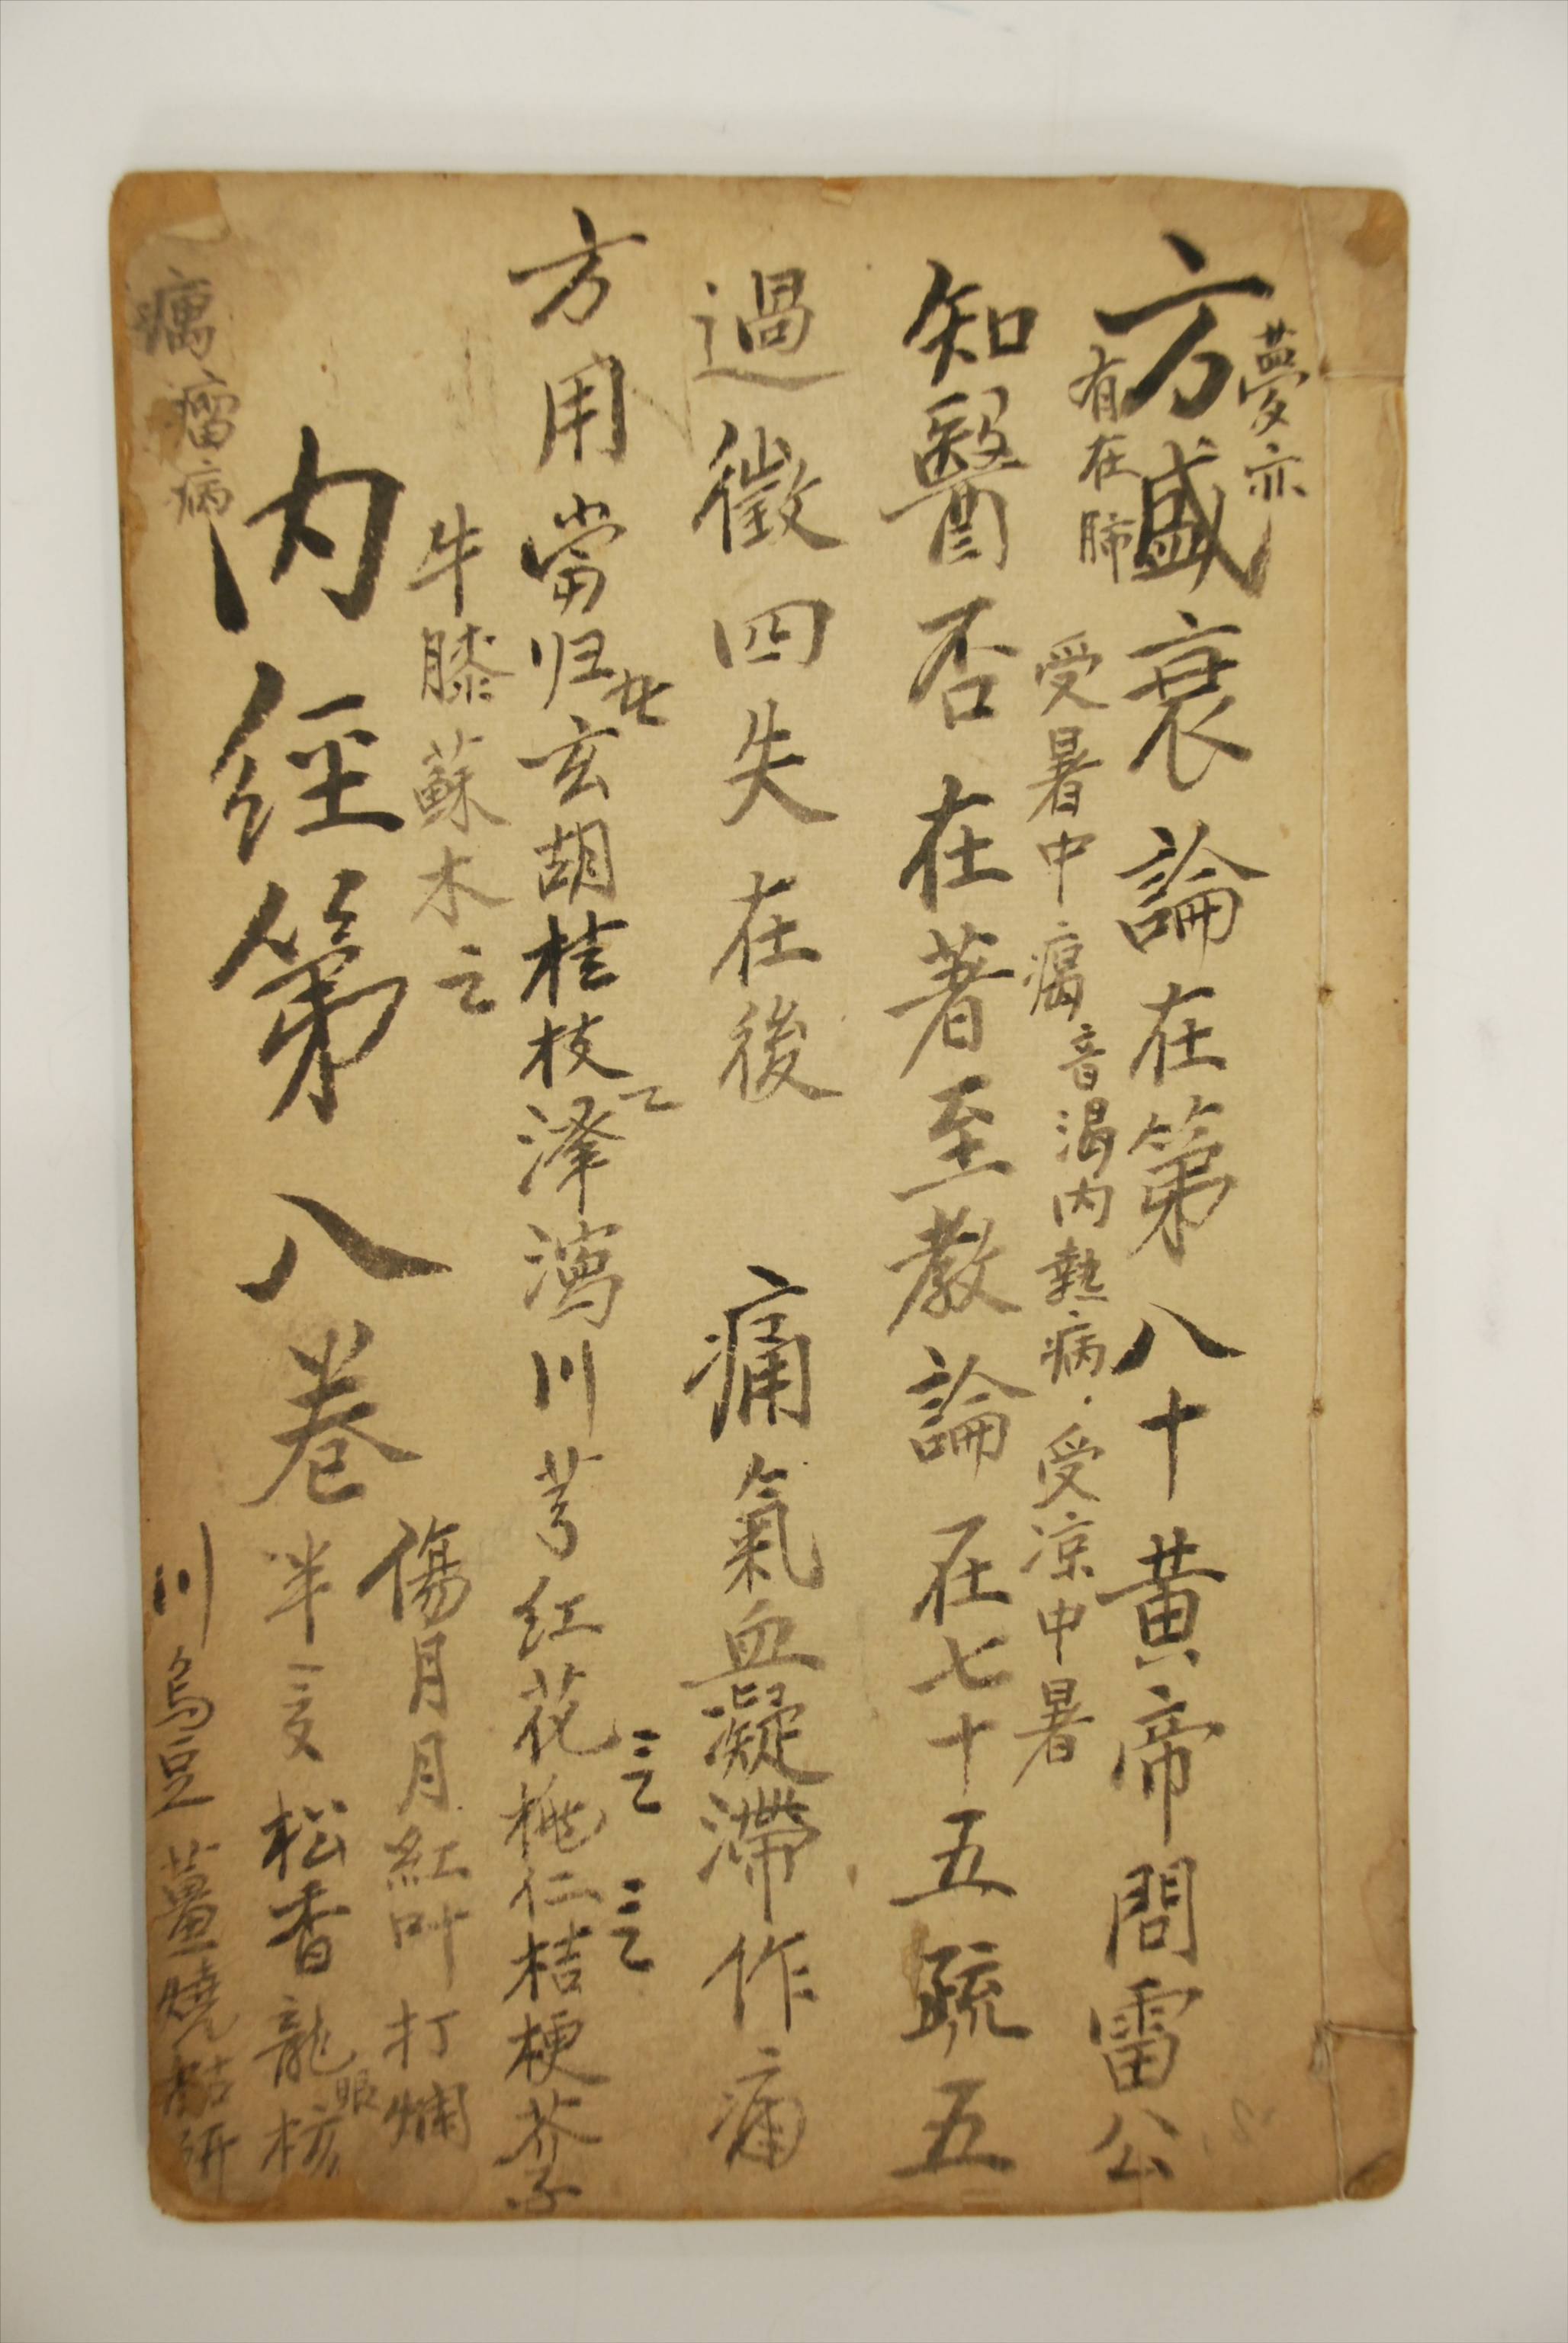 夢亦
方盛衰論在第八十黃帝問雷公
有在肺
受暑中㿣音渴內熱病．受涼中暑
知醫否在著至教論在七十五疏五
過徵四失在後
痛氣血凝滯作痛
方用當归玄胡桂枝澤瀉川芎紅花桃仁桔梗芥子
牛膝蘇木
傷月月紅叶打爛
內經第八卷
半文松香龍眼核
癘瘤病
川烏豆薑燒枯研